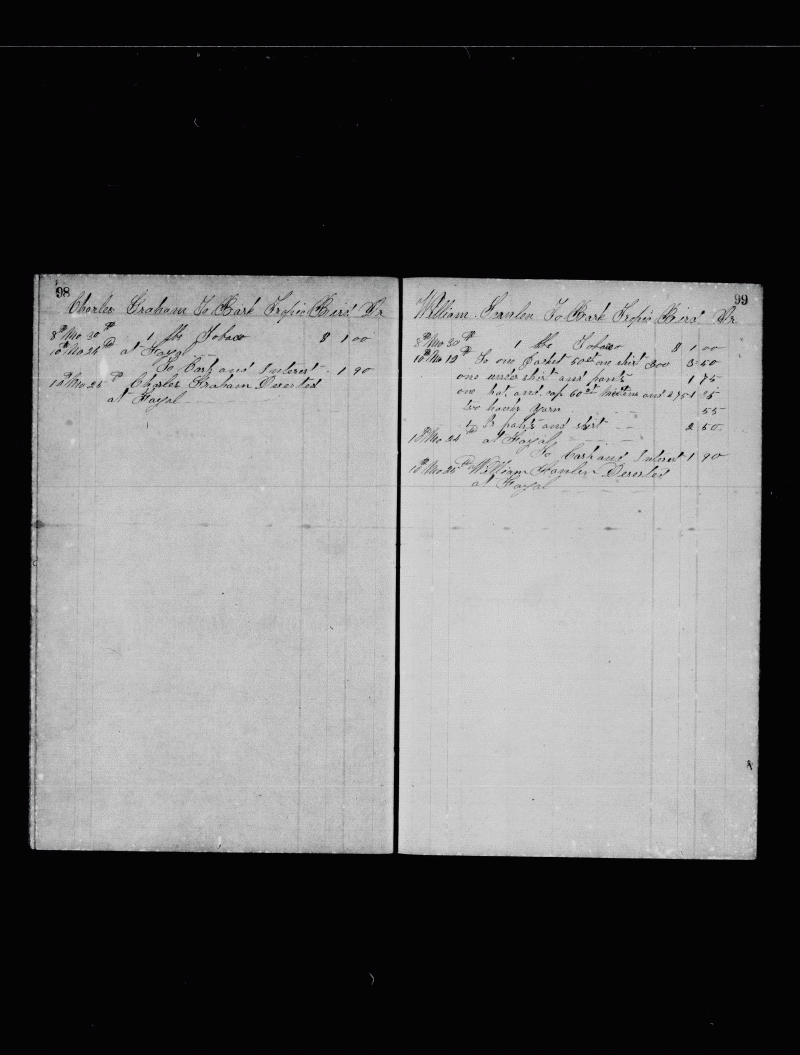 98
Charles Graham To Bark Tropic Bird Dr
8th Mo 30th 1 lbs Tobaco 8 1 00
10th Mo 24th at Fayal
To Cash and Interest - 1 90
10th Mo 25th Charles Graham Deserted
at Fayal
99
William Scanlen To Bark Tropic Bird Dr
8th Mo 30th 1 lbs Tobaco 8 1 00
10th Mo 12th To one Jacket 50ct one shirt 300 3 50
one under shirt and pants 1 75
one hat and cap 60ct Mittens and 275 1 35
two hanks Yarn 55
pants and shirt 2 50
10th Mo 24th at Fayal
To Cash and Interest 1 90
10th Mo 25th William Deserted
at Fayal